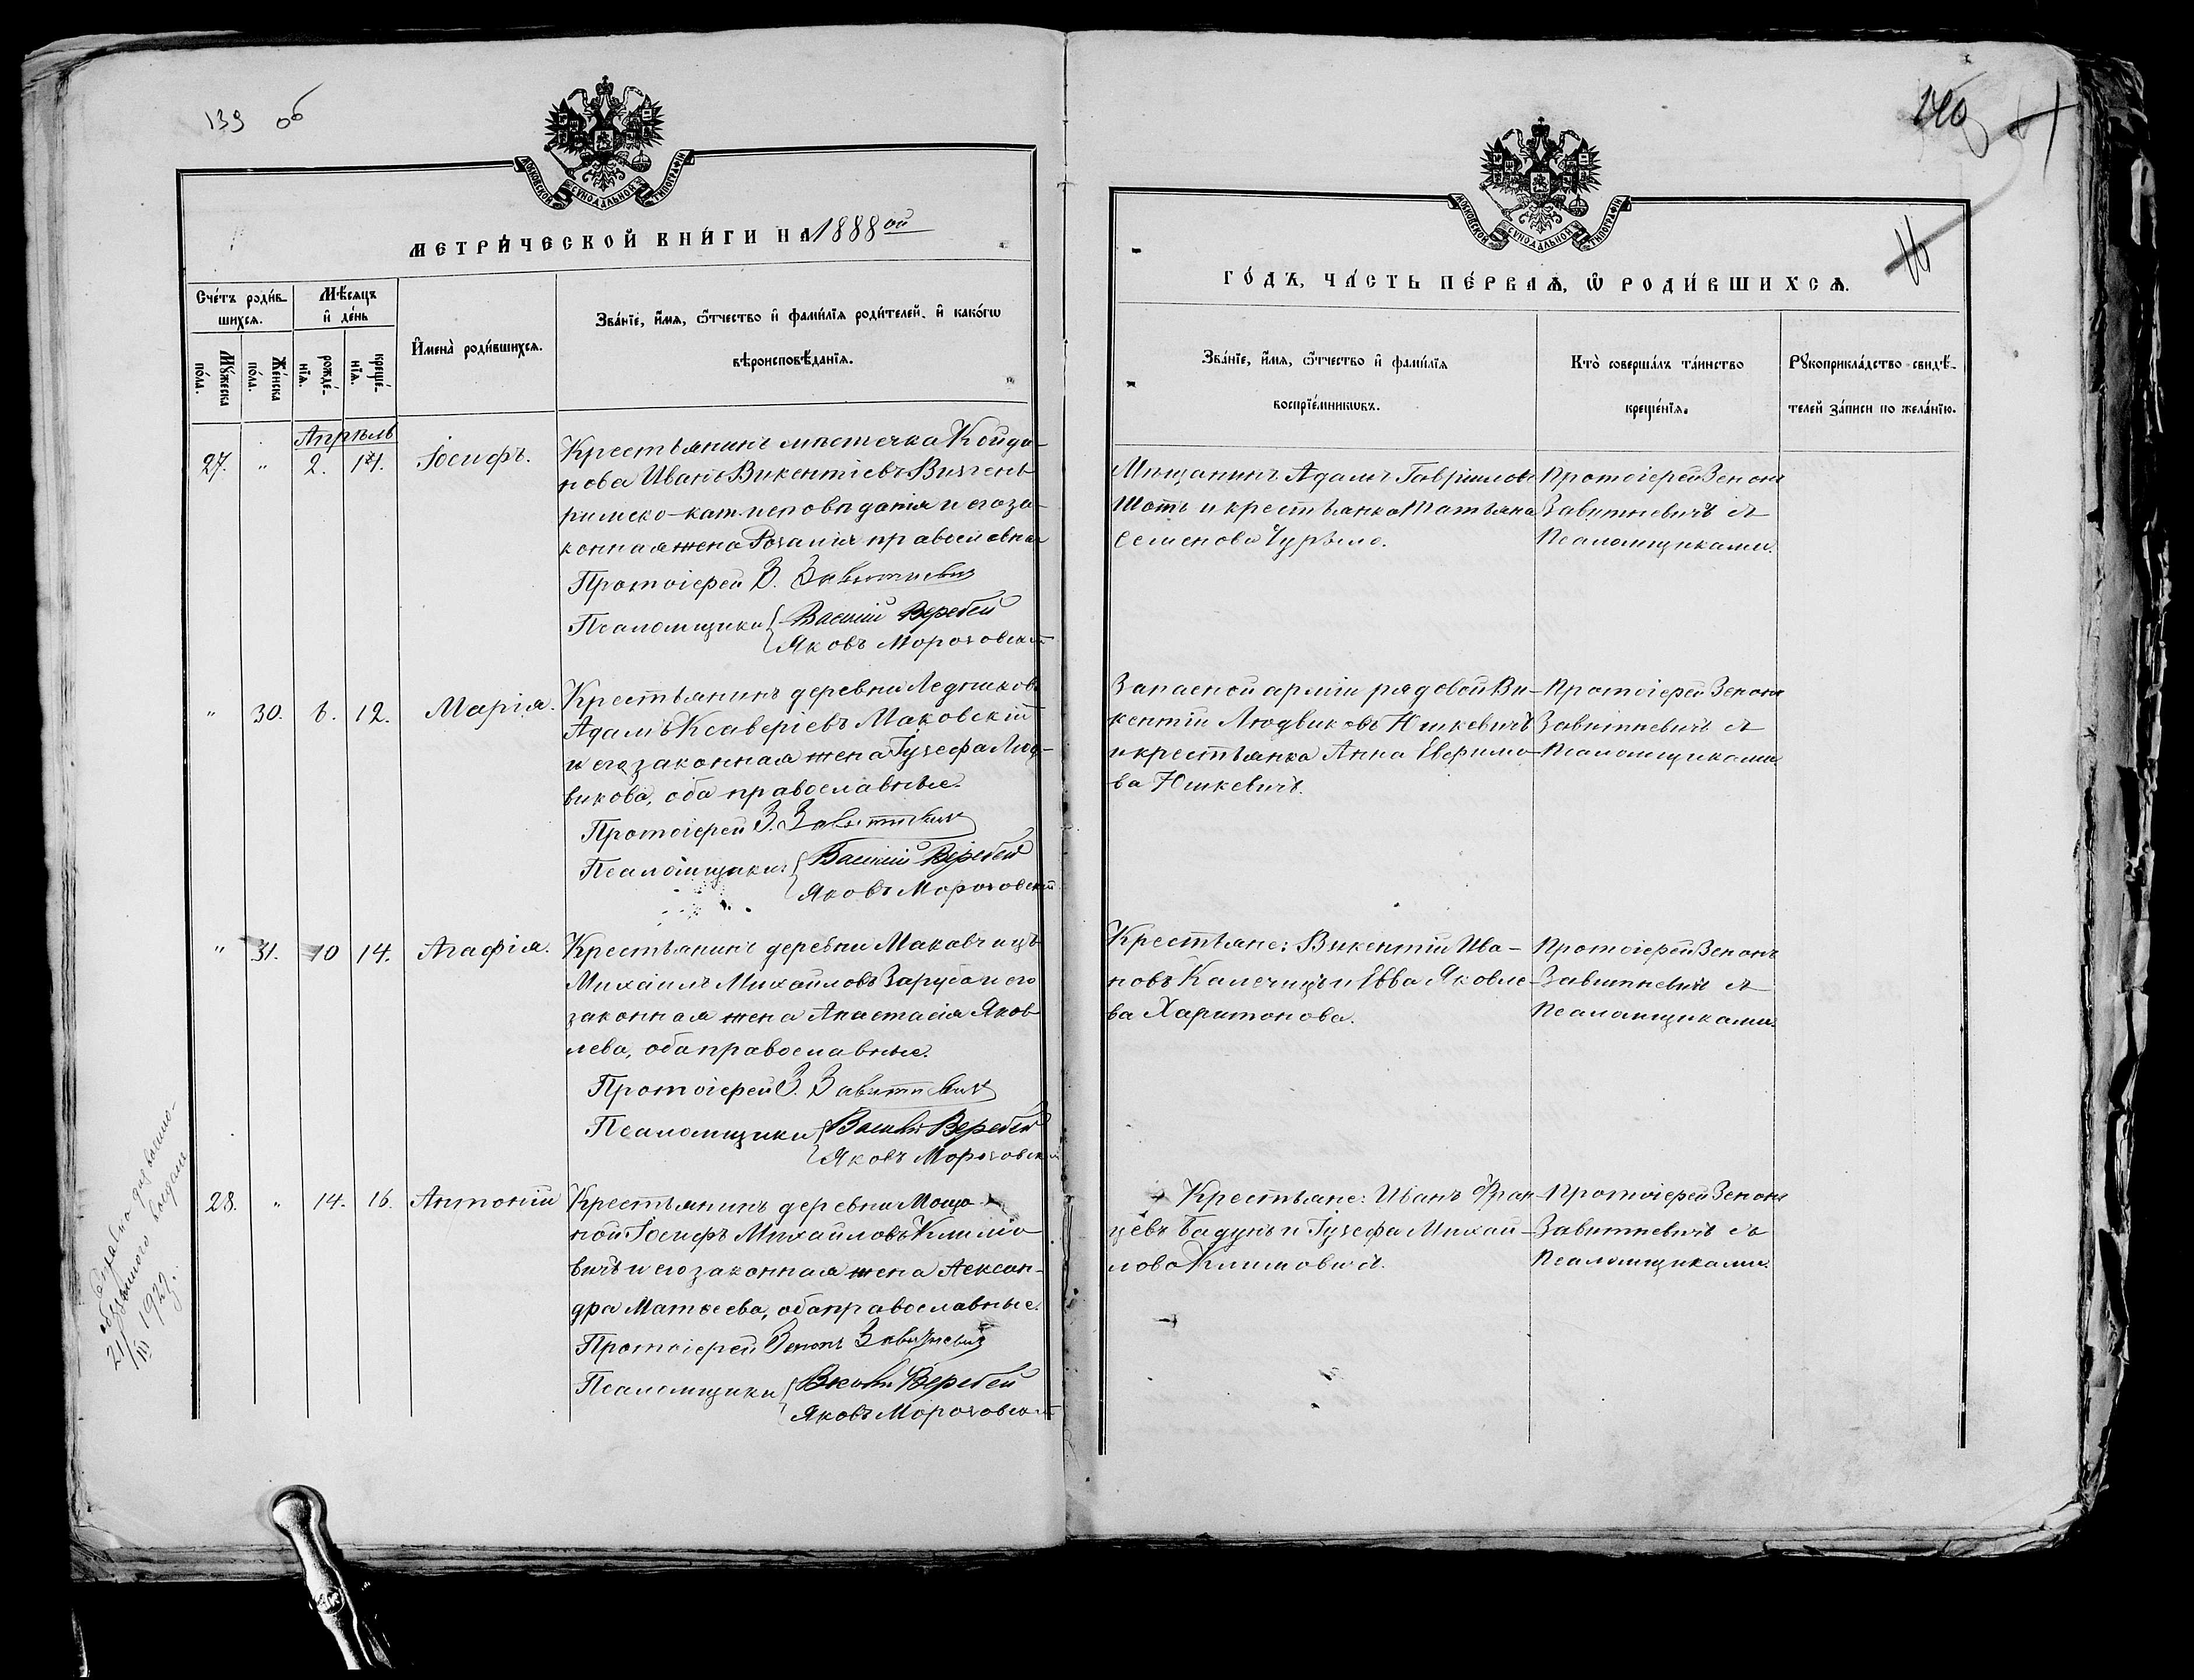 139 об
МОСКОВСКОЙ СѴНОДАЛЬНОЙ ТИПОГРАФІИ
МЕТРИ́ЧЕСКОЙ КНИ́ГИ НА 1888 ой
Сче́тъ роди́в-
шихсѧ.
Мѣ́сѧцъ
и҆ де́нь
Мꙋ́жеска
по́ла.
Же́нска
по́ла.
рожде́-
нїѧ.
креще́-
нїѧ.
И҆мена̀ роди́вшихсѧ.
Зва́нїе, и҆́мѧ, ѻ҆́тчество и҆ фами́лїѧ роди́телей, и҆ како́гѡ
вѣроисповѣ́данїѧ.
Апрѣль
27. " 2. 14. Іосифъ.
Крестьянинъ мѣстечка Койда-
нова Иванъ Викентіевъ
римско-кат. исповѣданія и его за-
конная жена Розалія православная
Протоіерей З. Завитневичъ
Псаломщики Василій Веребей
Яковъ Мороzовскій
" 30. 6. 12. Марія.
Крестьянинъ деревни Ледниковъ
Адамъ Ксаверіевъ Маковскій
и его законная жена Іузефа Люд-
викова, оба православные.
Протоіерей З. Завитневичъ
Псаломщики Василій Веребей
Яковъ Мороzовскій
" 31. 10 14. Агафія.
Крестьянинъ деревни Маковчицъ
Михаилъ Михайловъ Заруба и его
законная жена Анастасія Яков-
лева, оба православные.
Протоіерей З. Завитневичъ
Псаломщики Василій Веребей
Яковъ Мороzовскій
28. " 14. 16. Антоній
Крестьянинъ деревни Моща-
ной Іосифъ Михайловъ Климо-
вичъ и его законная жена Алексан-
дра Матвеева, оба православные.
Протоіерей Зенонъ Завитневичъ
Псаломщики Василій Веребей
Яковъ Мороzовскій
21/III 1923 г.
140
МОСКОВСКОЙ СѴНОДАЛЬНОЙ ТИПОГРАФІИ
ГО́ДЪ, ЧА́СТЬ ПЕ́РВАѦ, Ѡ҆ РОДИ́ВШИХСѦ.
Зва́нїе, и҆́мѧ, ѻ҆́тчество и҆ фами́лїѧ
воспрїе́мникѡвъ.
Кто̀ соверша́лъ та́инство
креще́нїѧ.
Рꙋкоприкла́дство свидѣ́-
телей за́писи по жела́нїю.
Мѣщанинъ Адамъ Гавріиловъ
Шотъ и крестьянка Татьяна
Семенова Чурило.
Протоіерей Зенонъ
Завитневичъ съ
Псаломщиками.
Запасной арміи рядовой Ви-
кентій Людвиковъ Юшкевичъ
и крестьянка Анна Ефимо-
ва Юшкевичъ.
Протоіерей Зенонъ
Завитневичъ съ
Псаломщиками
Крестьяне: Викентій Ива-
новъ Калечицъ и Евва Яковле-
ва Харитонова.
Протоіерей Зенонъ
Завитневичъ съ
Псаломщиками.
Крестьяне: Иванъ Фран-
цевъ Бадунъ и Іузефа Михай-
лова Климовичъ.
Протоіерей Зенонъ
Завитневичъ съ
Псаломщиками.